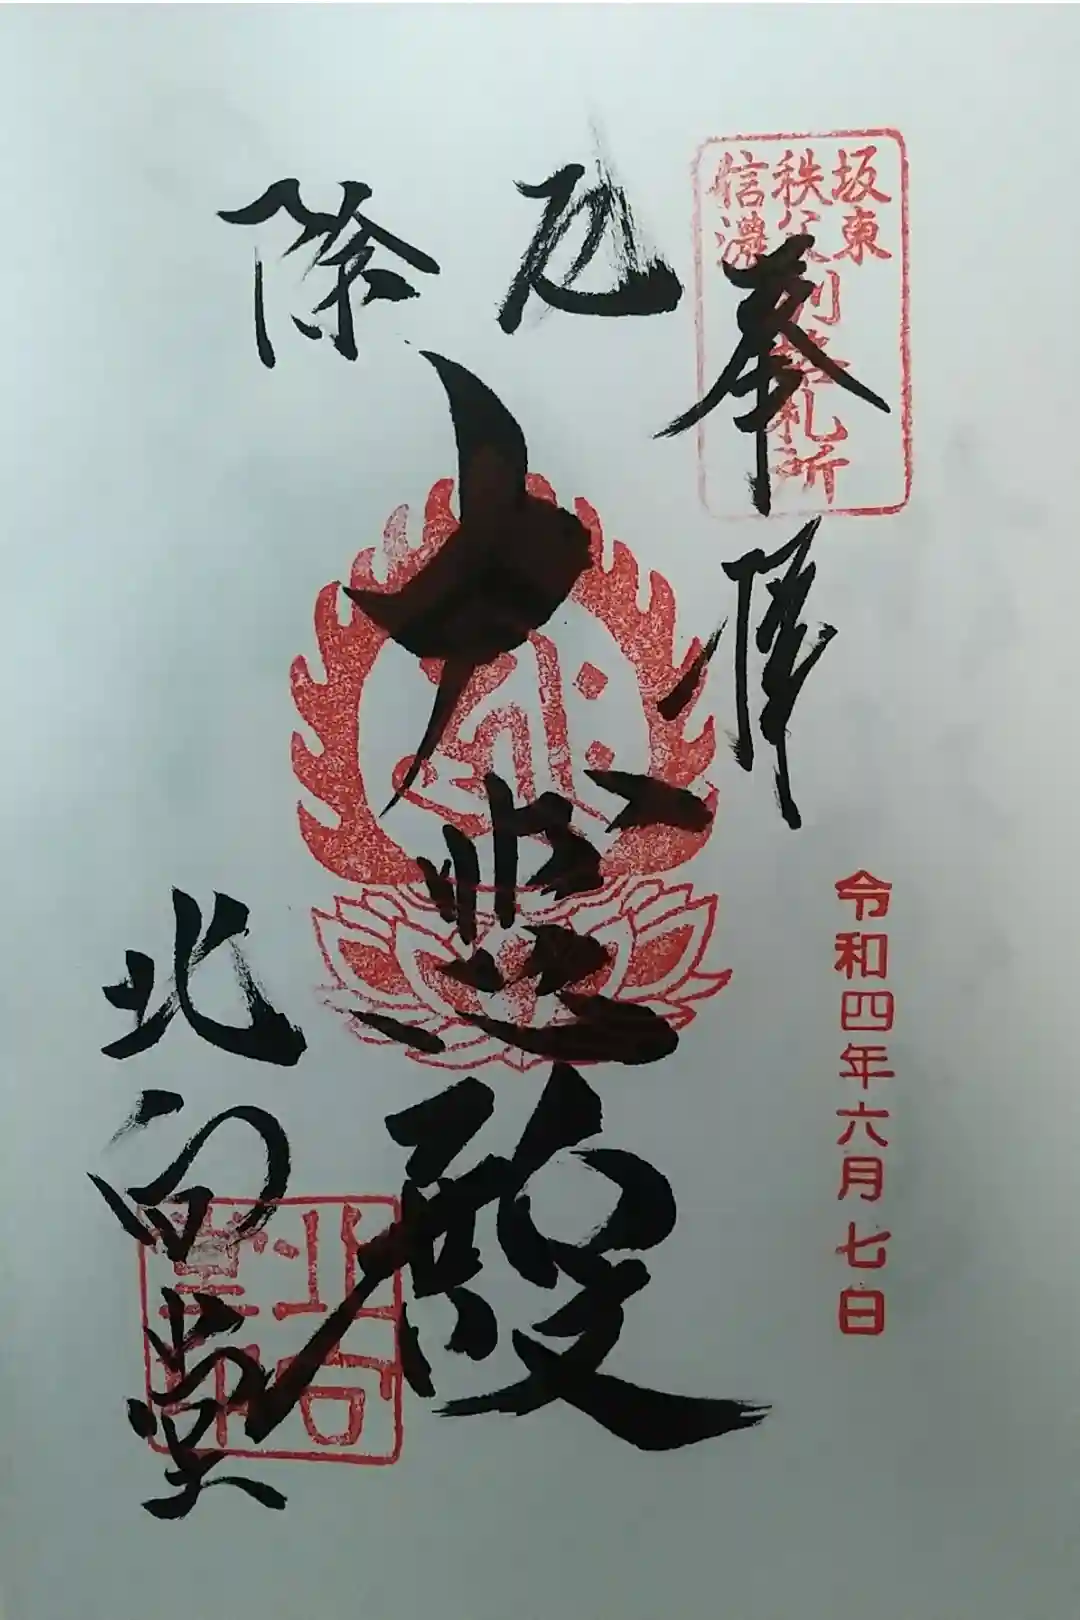 坂東
秩父
信濃
別格札所
奉拝
令和四年六月七日
厄除
大悲殿
北向堂
北向
堂印